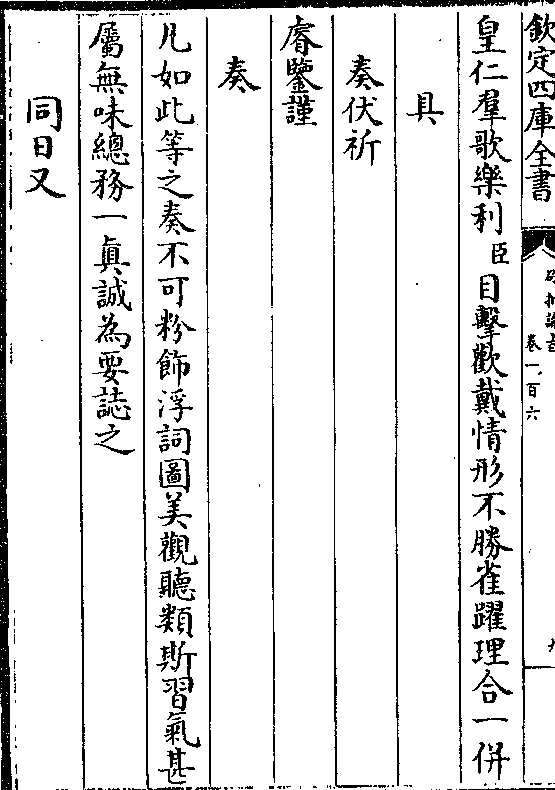 欽定四庫全書
硃批諭旨
卷一百六
九
皇仁羣歌樂利臣目擊歡戴情形不勝雀躍理合一併
具
奏伏祈
睿鑒謹
奏
凡如此等之奏不可粉飾浮詞圖美觀聽類斯習氣甚
屬無味總務一真誠為要誌之
同日又